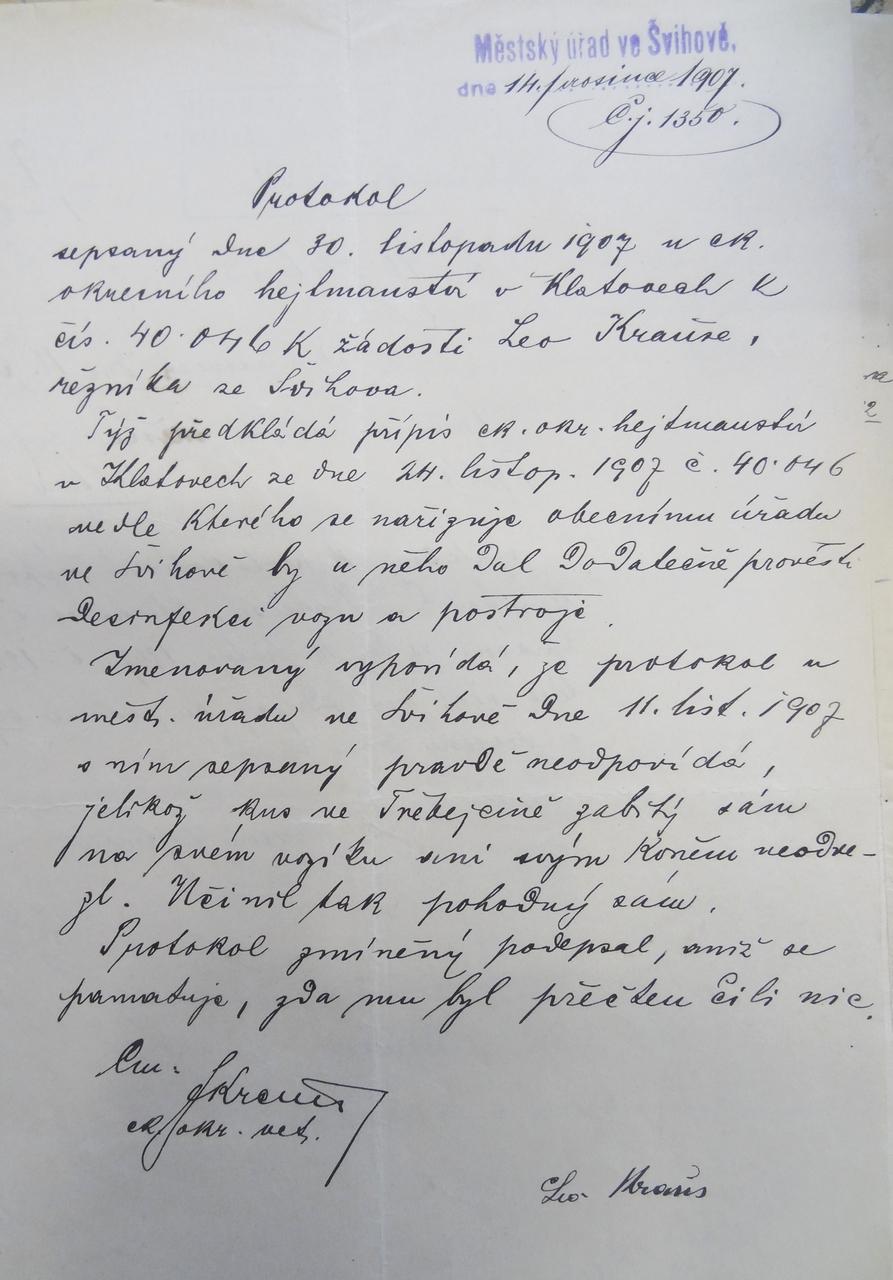 Městský úřad ve Švihově,
dne 14. prosince 1907.
Č.j. 1350.
Protokol
sepsaný dne 30. listopadu 1907 u ck.
okresního hejtmanství v Klatovech k
čís. 40.046 k žádosti Leo Krause,
řezníka ze Švihova.
Týž předkládá přípis ck. okr. hejtmanství
v Klatovech ze dne 24. listop. 1907 č. 40.046
vedle kterého se nařizuje obecnímu úřadu
ve Švihově by u něho dal dodatečně provésti
desinfekci vozu a postroje.
Jmenovaný vypovídá, že protokol u
měst. úřadu ve Švihově dne 11. list. 1907
s ním sepsaný pravdě neodpovídá,
jelikož kus ve Třebejcině zabitý sám
na svém vozíku ani svým koněm neodve-
zl. Učinil tak pohodný sám.
Protokol zmíněný podepsal, aniž se
pamatuje, zda mu byl přečten čili nic.
ck. okr. vet.
Leo Kraus
na
2